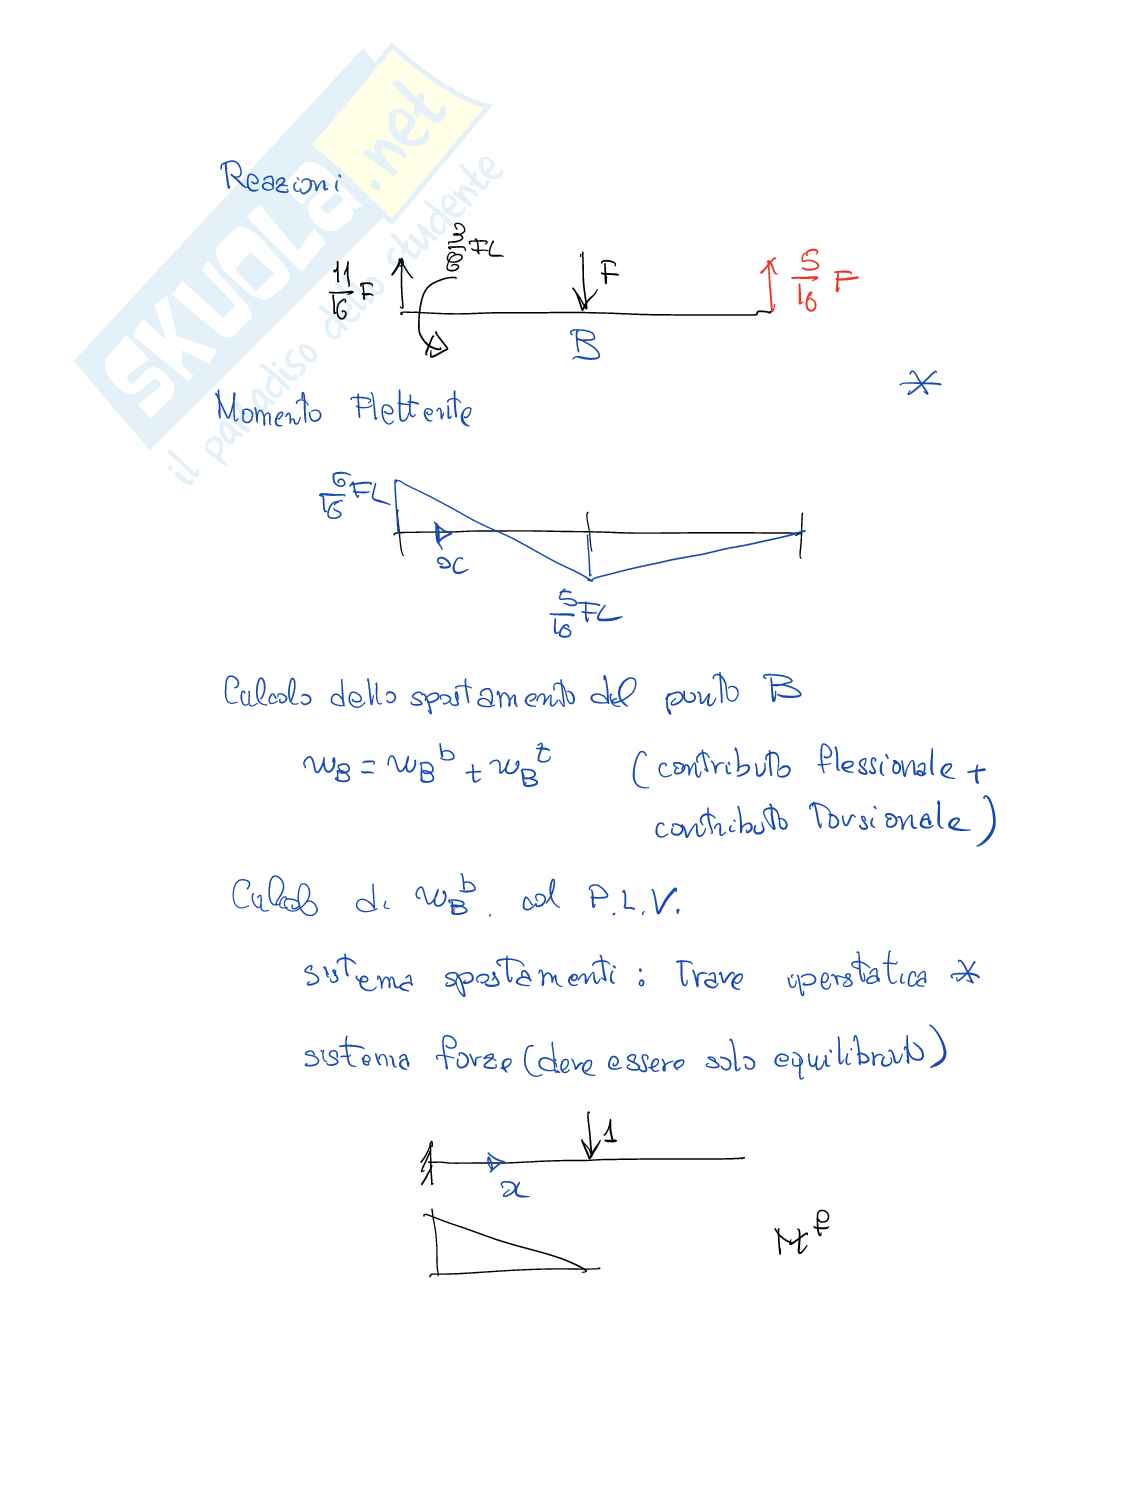 SKUOLA.net
il paradiso dello studente
Reazioni
11/16 F
3/8 FL
F
5/16 F
B
*
Momento Flettente
6/16 FL
x
5/16 FL
Calcolo dello spostamento del punto B
w_B = w_B^b + w_B^t (contributo flessionale +
contributo Torsionale)
Calcolo di w_B^b. col P.L.V.
sistema spostamenti: Trave iperstatica *
sistema forze (deve essere solo equilibrato)
1
x
M^f